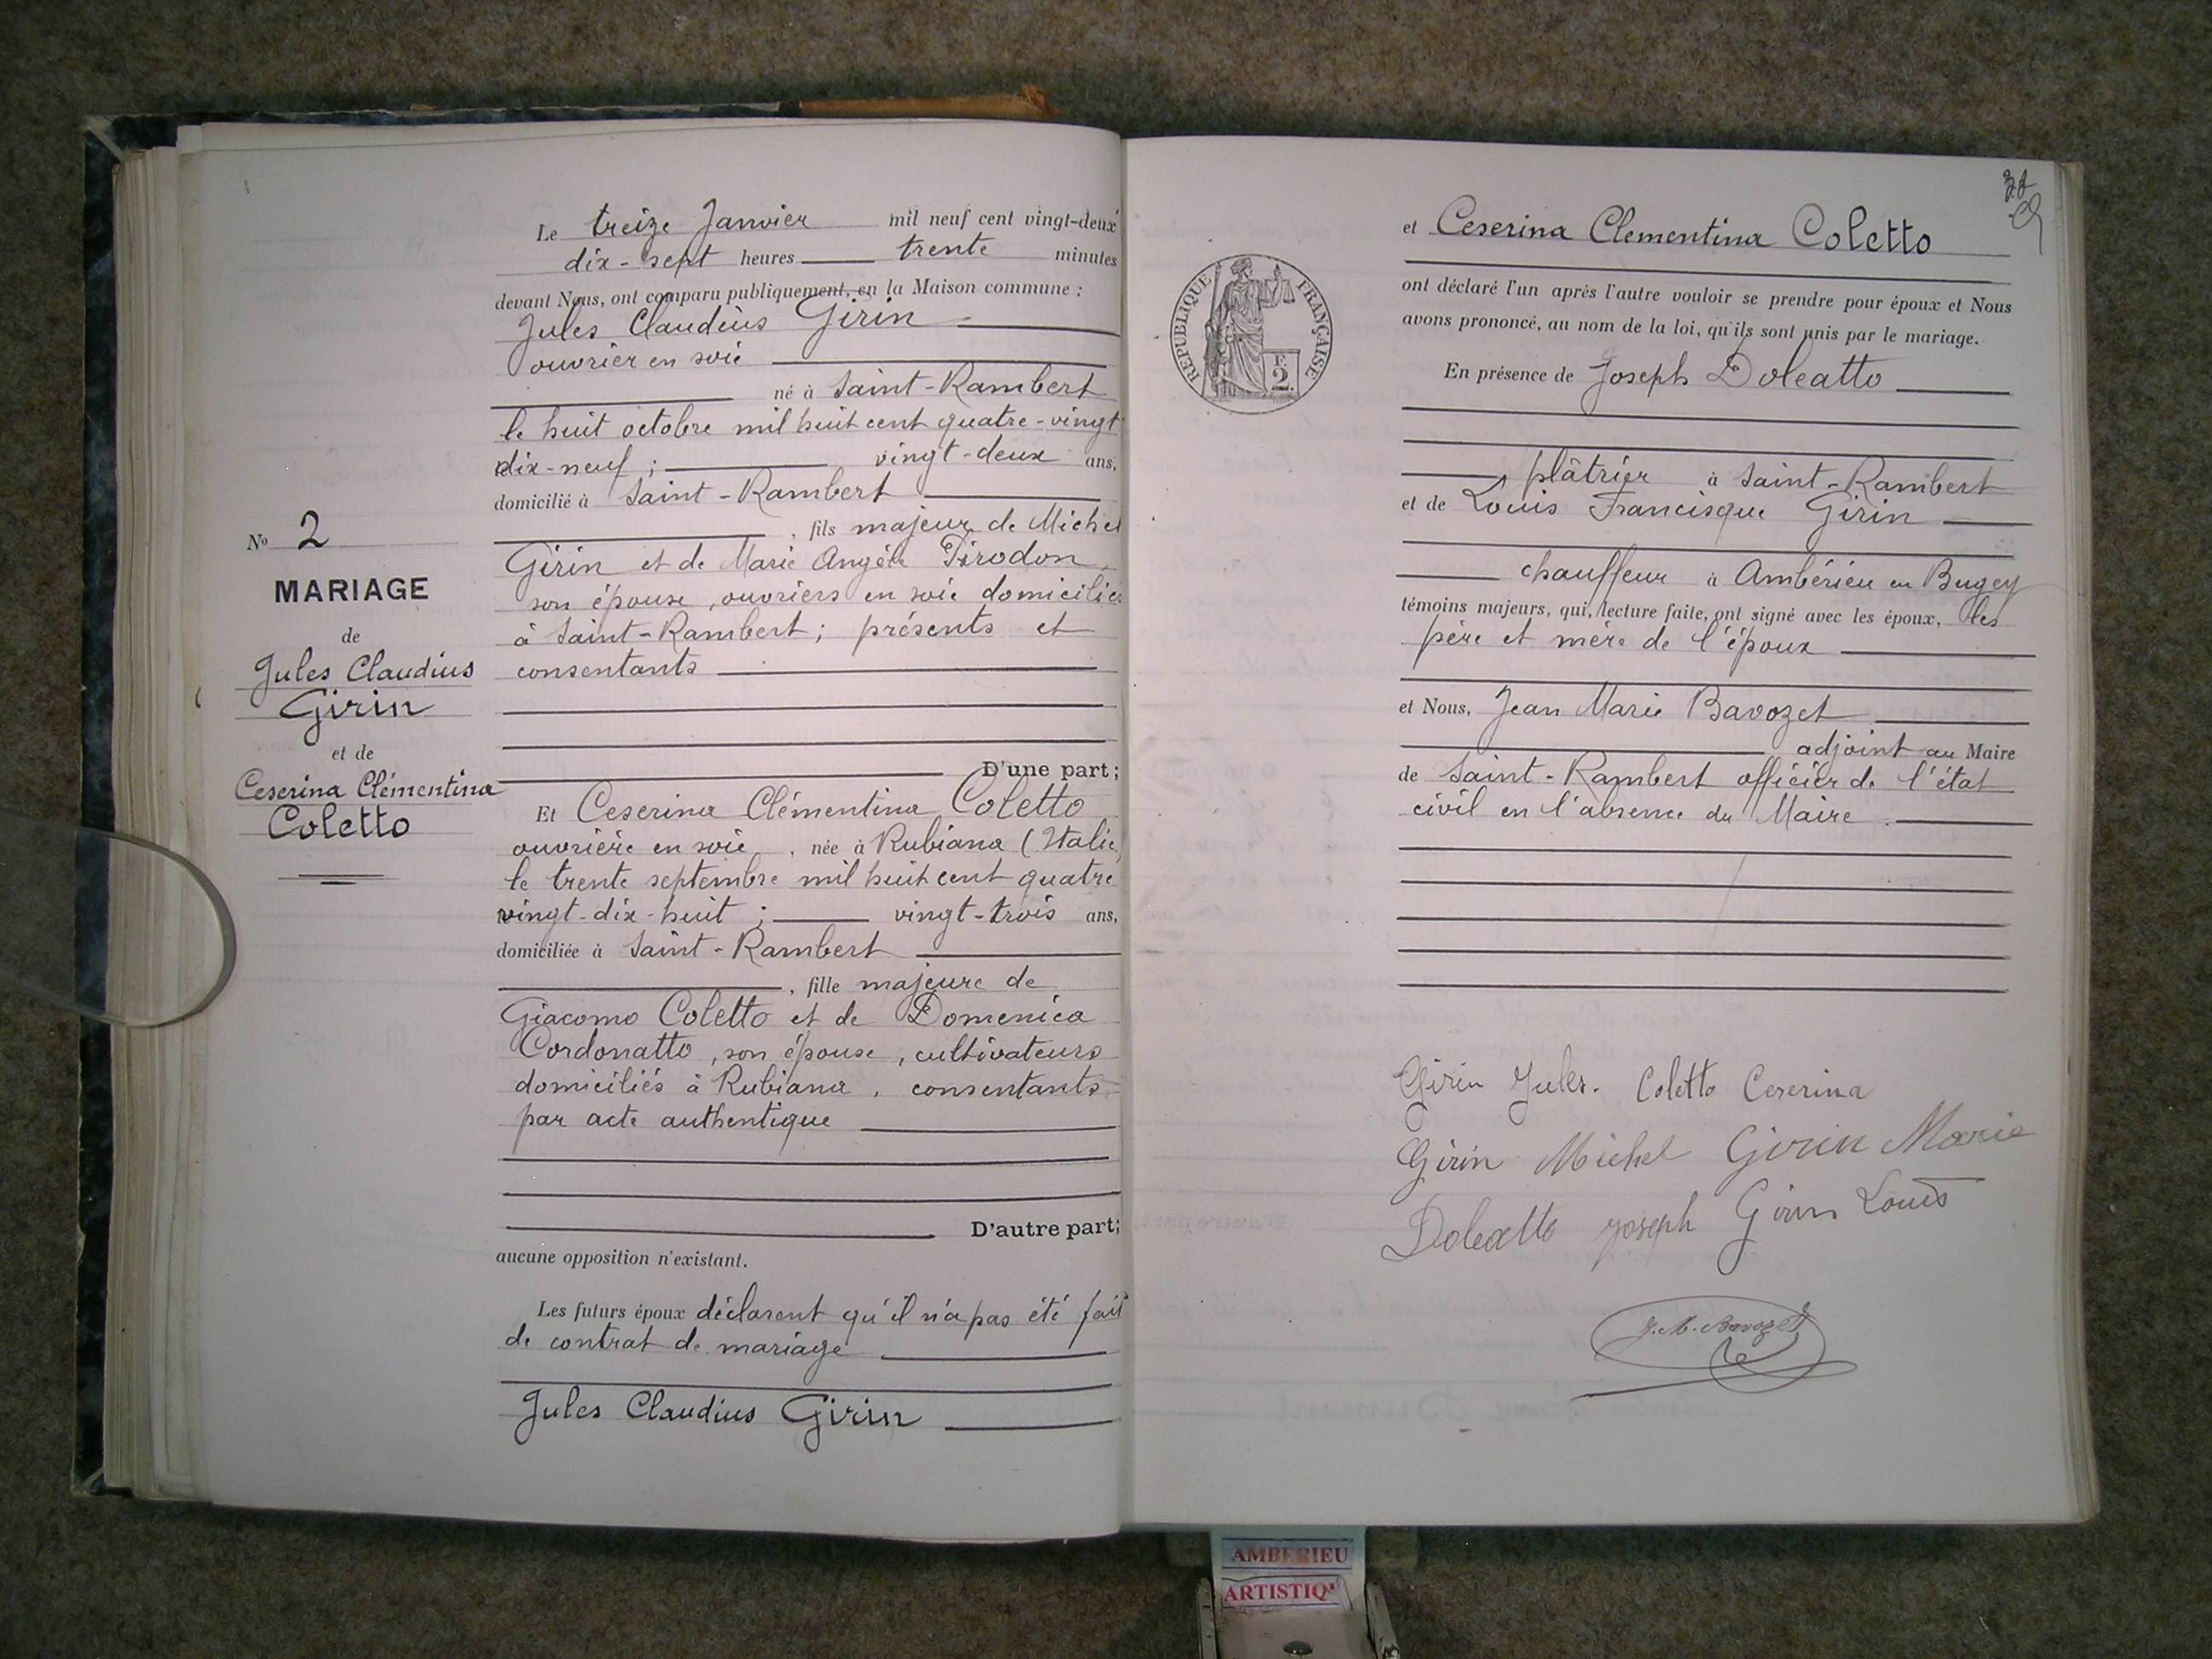 No 2
MARIAGE
de
Jules Claudius
Girin
et de
Ceserina Clémentina
Coletto
Le treize Janvier mil neuf cent vingt-deux
dix-sept heures trente minutes
devant Nous, ont comparu publiquement, en la Maison commune :
Jules Claudius Girin
ouvrier en soie
né à Saint-Rambert
le huit octobre mil huit cent quatre-vingt
dix-neuf ; vingt-deux ans,
domicilié à Saint-Rambert
, fils majeur de Michel
Girin et de Marie Angèle Pirodon,
son épouse, ouvriers en soie domiciliés
à Saint-Rambert ; présents et
consentants
D'une part ;
Et Ceserina Clémentina Coletto
ouvrière en soie, née à Rubiana (Italie)
le trente septembre mil huit cent quatre
vingt-dix-huit ; vingt-trois ans,
domiciliée à Saint-Rambert
, fille majeure de
Giacomo Coletto et de Domenica
Cordonatto, son épouse, cultivateurs
domiciliés à Rubiana, consentants
par acte authentique
D'autre part ;
aucune opposition n'existant.
Les futurs époux déclarent qu'il n'a pas été fait
de contrat de mariage
Jules Claudius Girin
RÉPUBLIQUE FRANÇAISE
2
et Ceserina Clementina Coletto
ont déclaré l'un après l'autre vouloir se prendre pour époux et Nous
avons prononcé, au nom de la loi, qu'ils sont unis par le mariage.
En présence de Joseph Doleatto
plâtrier à Saint-Rambert
et de Louis Francisque Girin
chauffeur à Ambérieu en Bugey
témoins majeurs, qui, lecture faite, ont signé avec les époux, les
père et mère de l'époux
et Nous, Jean Marie Bavozet
adjoint au Maire
de Saint-Rambert officier de l'état
civil en l'absence du Maire.
Girin Jules. Coletto Ceserina
Girin Michel Girin Marie
Doleatto joseph Girin Louis
J.M. Bavozet
AMBERIEU
ARTISTIQ'